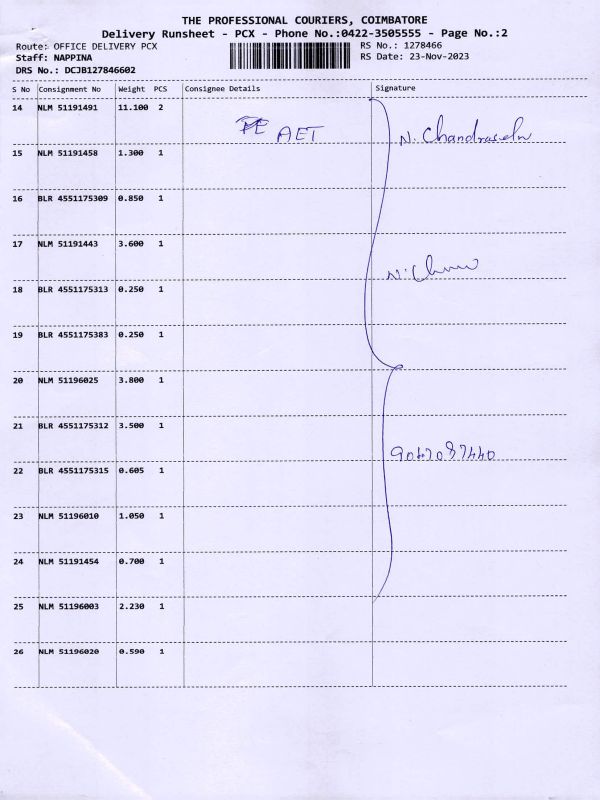 THE PROFESSIONAL COURIERS, COIMBATORE
Delivery Runsheet - PCX - Phone No.:0422-3505555 - Page No.:2
Route: OFFICE DELIVERY PCX
RS No.: 1278466
Staff: NAPPINA
RS Date: 23-Nov-2023
DRS No.: DCJB127846602
S No Consignment No Weight PCS Consignee Details Signature
14 NLM 51191491 11.100 2
AET N. Chandrasekr
15 NLM 51191458 1.300 1
16 BLR 4551175309 0.850 1
17 NLM 51191443 3.600 1
18 BLR 4551175313 0.250 1
19 BLR 4551175383 0.250 1
20 NLM 51196025 3.800 1
21 BLR 4551175312 3.500 1
9047087440
22 BLR 4551175315 0.605 1
23 NLM 51196010 1.050 1
24 NLM 51191454 0.700 1
25 NLM 51196003 2.230 1
26 NLM 51196020 0.590 1